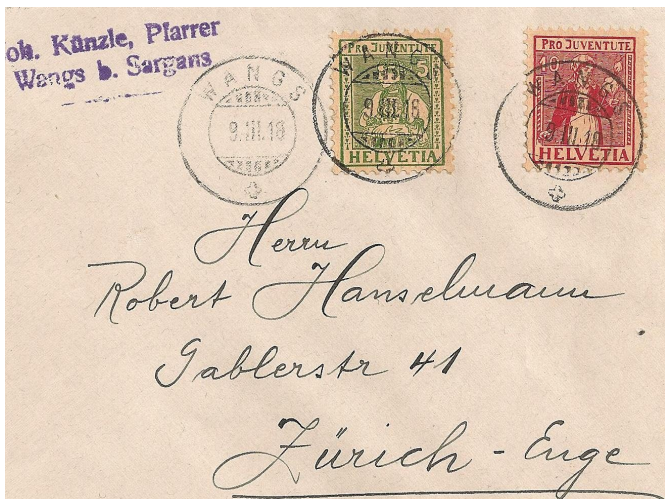 oh. Künzle, Pfarrer
Wangs b. Sargans
WANGS
9.III.18
PRO JUVENTUTE
5
WANGS
9.III.18
HELVETIA
PRO JUVENTUTE
10
WANGS
9.III.18
HELVETIA
Herrn
Robert Hanselmann
Gablerstr 41
Zürich-Enge